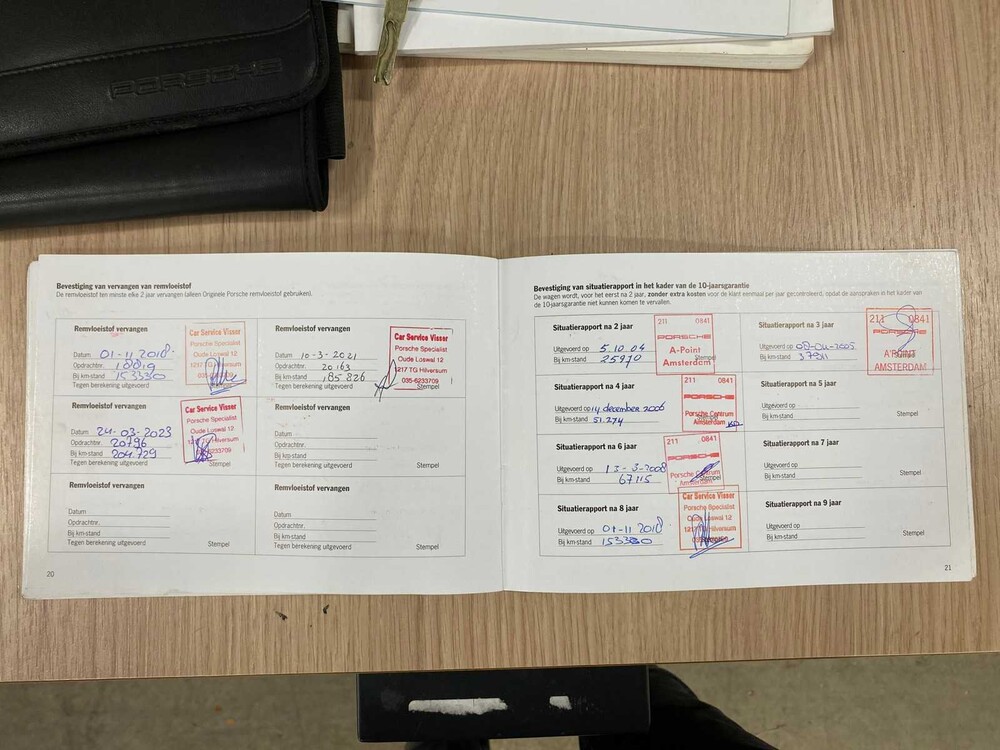 PORSCHE
Bevestiging van vervangen van remvloeistof
De remvloeistof ten minste elke 2 jaar vervangen (alleen Originele Porsche remvloeistof gebruiken).
Remvloeistof vervangen
Datum 01-11 2018
Opdrachtnr. 18819
Bij km-stand 153330
Tegen berekening uitgevoerd
Car Service Visser
Porsche Specialist
Oude Loswal 12
1217 TG Hilversum
Remvloeistof vervangen
Datum 10-3-2021
Opdrachtnr. 20163
Bij km-stand 185826
Tegen berekening uitgevoerd
Car Service Visser
Porsche Specialist
Oude Loswal 12
1217 TG Hilversum
035-6233709
Stempel
Remvloeistof vervangen
Datum 24-03-2023
Opdrachtnr. 20796
Bij km-stand 204.729
Tegen berekening uitgevoerd
Car Service Visser
Porsche Specialist
Oude Loswal 12
Hilversum
6233709
Stempel
Remvloeistof vervangen
Datum
Opdrachtnr.
Bij km-stand
Tegen berekening uitgevoerd
Stempel
Remvloeistof vervangen
Datum
Opdrachtnr.
Bij km-stand
Tegen berekening uitgevoerd
Stempel
Remvloeistof vervangen
Datum
Opdrachtnr.
Bij km-stand
Tegen berekening uitgevoerd
Stempel
20
Bevestiging van situatierapport in het kader van de 10-jaarsgarantie
De wagen wordt, voor het eerst na 2 jaar, zonder extra kosten voor de klant eenmaal per jaar gecontroleerd, opdat de aanspraken in het kader van
de 10-jaarsgarantie niet kunnen komen te vervallen.
Situatierapport na 2 jaar
Uitgevoerd op 5.10.04
Bij km-stand 25970
211 0841
PORSCHE
A-Point
Amsterdam
Stempel
Situatierapport na 3 jaar
Uitgevoerd op 08-04-2005
Bij km-stand 37911
211 0841
PORSCHE
A-POINT
AMSTERDAM
Stempel
Situatierapport na 4 jaar
Uitgevoerd op 14 december 2006
Bij km-stand 51.274
211 0841
PORSCHE
Porsche Centrum
Amsterdam
Situatierapport na 5 jaar
Uitgevoerd op
Bij km-stand
Stempel
Situatierapport na 6 jaar
Uitgevoerd op 13-3-2008
Bij km-stand 67115
211 0841
PORSCHE
Porsche Centrum
Amsterdam
Stempel
Situatierapport na 7 jaar
Uitgevoerd op
Bij km-stand
Stempel
Situatierapport na 8 jaar
Uitgevoerd op 01-11 2018
Bij km-stand 153330
Car Service Visser
Porsche Specialist
Oude Loswal 12
Hilversum
Situatierapport na 9 jaar
Uitgevoerd op
Bij km-stand
Stempel
21